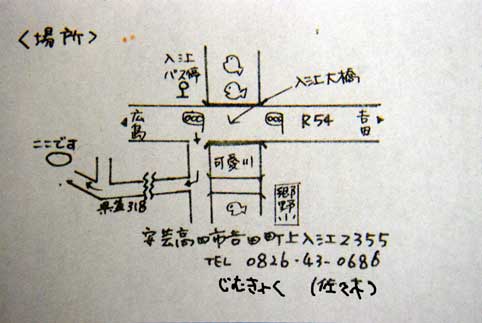 <場所>
入江
バス停
入江大橋
広島
R54
吉田
ここです
可愛川
県道318
郷野川
安芸高田市吉田町上入江2355
TEL 0826-43-0686
じむきょく (佐々木)